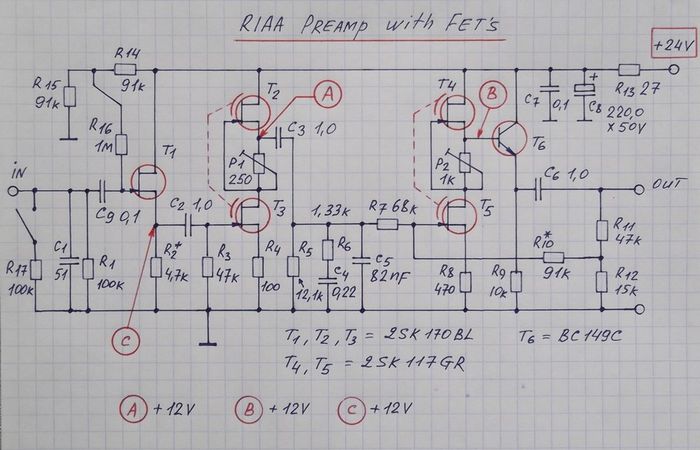 RIAA PREAMP with FET's
+24V
R14
91k
R15
91k
R16
1M
T1
T2
A
C3 1,0
P1
250
T3
T4
B
P2
1k
T5
T6
C7
0,1
+
C8
220,0
x 50V
R13 27
iN
C9 0,1
C2 1,0
1,33k
R7 68k
C6 1,0
OUT
R17
100k
C1
51
R1
100k
R2*
4,7k
R3
47k
R4
100
R5
12,1k
R6
C4
0,22
C5
82nF
R8
470
R9
10k
R10*
91k
R11
47k
R12
15k
C
T1, T2, T3 = 2SK170BL
T4, T5 = 2SK117GR
T6 = BC149C
A +12V
B +12V
C +12V